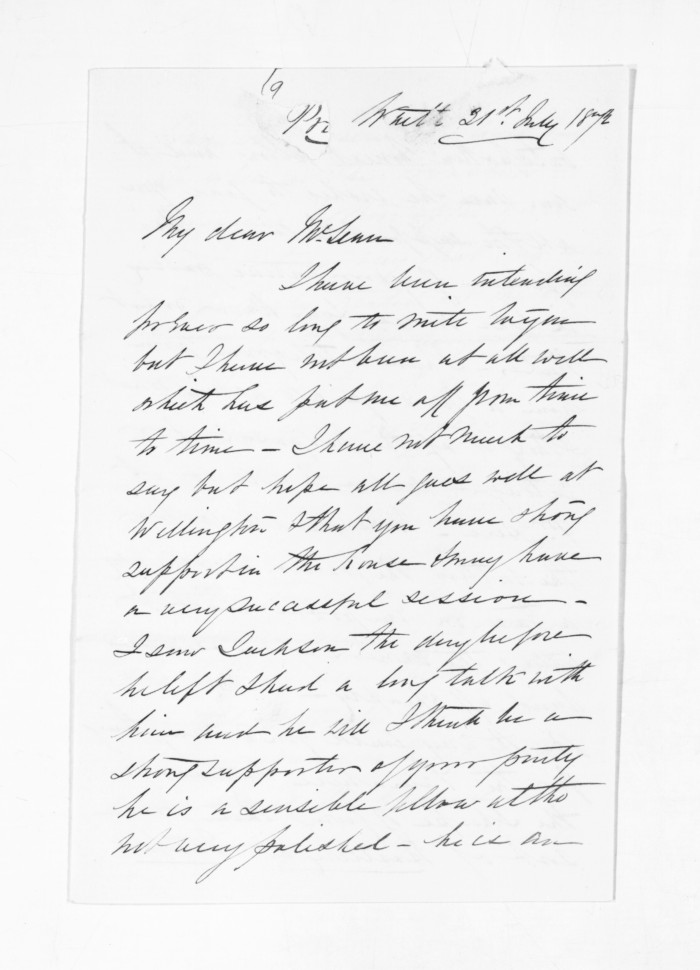 19
Wait't 21st July 1872
My dear McLean
I have been intending
for ever so long to write to you
but I have not been at all well
which has put me off from time
to time - I have not much to
say but hope all goes well at
Wellington & that you have strong
support in the house & may have
a very successful session -
I saw Jackson the day before
he left & had a long talk with
him and he will I think be a
strong supporter of your party
he is a sensible fellow altho
not very polished - he is an